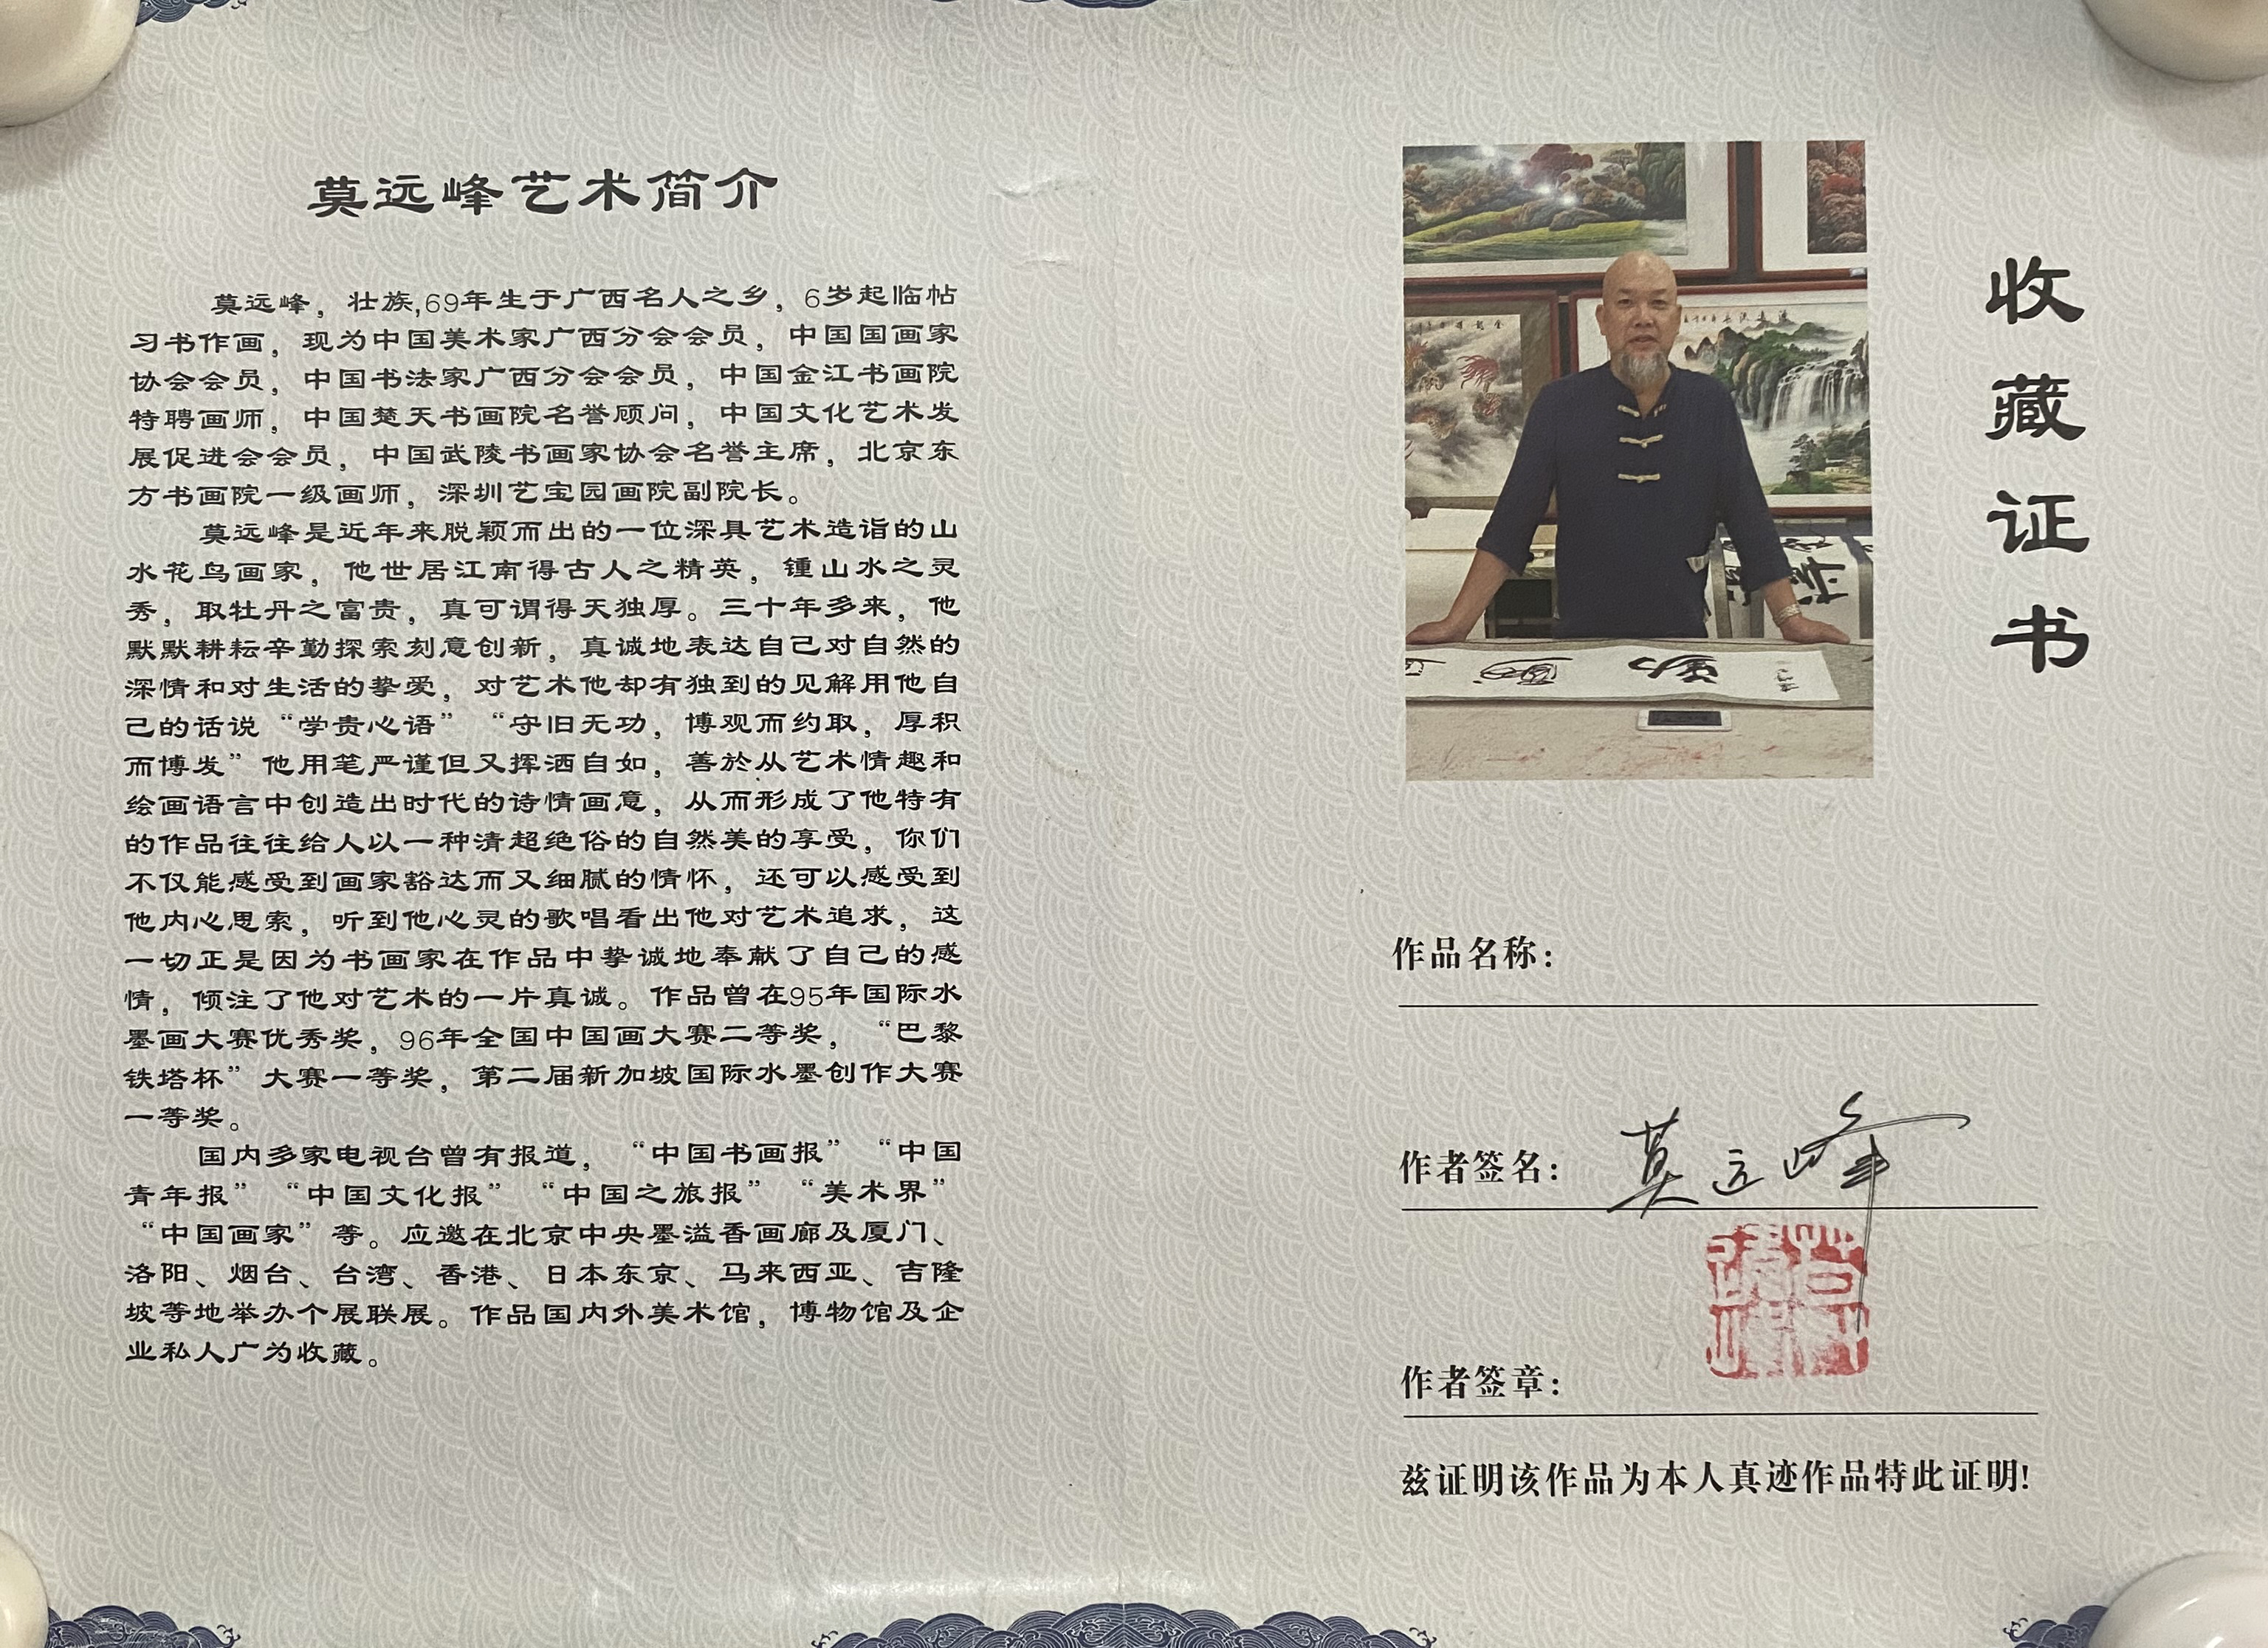 莫远峰艺术简介
莫远峰，壮族,69年生于广西名人之乡，6岁起临帖
习书作画，现为中国美术家广西分会会员，中国国画家
协会会员，中国书法家广西分会会员，中国金江书画院
特聘画师，中国楚天书画院名誉顾问，中国文化艺术发
展促进会会员，中国武陵书画家协会名誉主席，北京东
方书画院一级画师，深圳艺宝园画院副院长。
莫远峰是近年来脱颖而出的一位深具艺术造诣的山
水花鸟画家，他世居江南得古人之精英，锺山水之灵
秀，取牡丹之富贵，真可谓得天独厚。三十年多来，他
默默耕耘辛勤探索刻意创新，真诚地表达自己对自然的
深情和对生活的挚爱，对艺术他却有独到的见解用他自
己的话说“学贵心语”“守旧无功，博观而约取，厚积
而博发”他用笔严谨但又挥洒自如，善於从艺术情趣和
绘画语言中创造出时代的诗情画意，从而形成了他特有
的作品往往给人以一种清超绝俗的自然美的享受，你们
不仅能感受到画家豁达而又细腻的情怀，还可以感受到
他内心思索，听到他心灵的歌唱看出他对艺术追求，这
一切正是因为书画家在作品中挚诚地奉献了自己的感
情，倾注了他对艺术的一片真诚。作品曾在95年国际水
墨画大赛优秀奖，96年全国中国画大赛二等奖，“巴黎
铁塔杯”大赛一等奖，第二届新加坡国际水墨创作大赛
一等奖。
国内多家电视台曾有报道，“中国书画报”“中国
青年报”“中国文化报”“中国之旅报”“美术界”
“中国画家”等。应邀在北京中央墨溢香画廊及厦门、
洛阳、烟台、台湾、香港、日本东京、马来西亚、吉隆
坡等地举办个展联展。作品国内外美术馆，博物馆及企
业私人广为收藏。
收藏证书
作品名称：
作者签名：莫远峰
作者签章：
兹证明该作品为本人真迹作品特此证明!